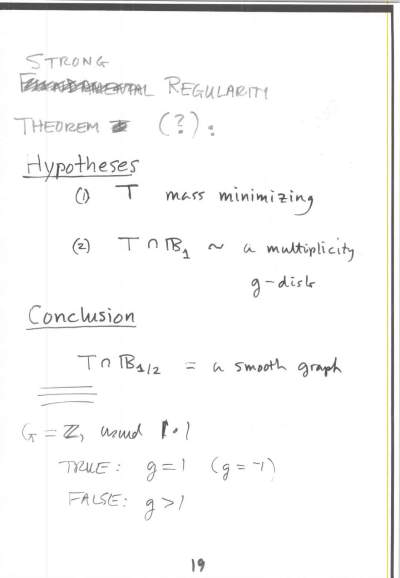 STRONG
FUNDAMENTAL REGULARITY
THEOREM (?):
Hypotheses
(1) T mass minimizing
(2) T ∩ 𝔹₁ ~ a multiplicity
g-disk
Conclusion
T ∩ 𝔹₁/₂ = a smooth graph
G = ℤ, usual |·|
TRUE: g=1 (g=-1)
FALSE: g>1
19